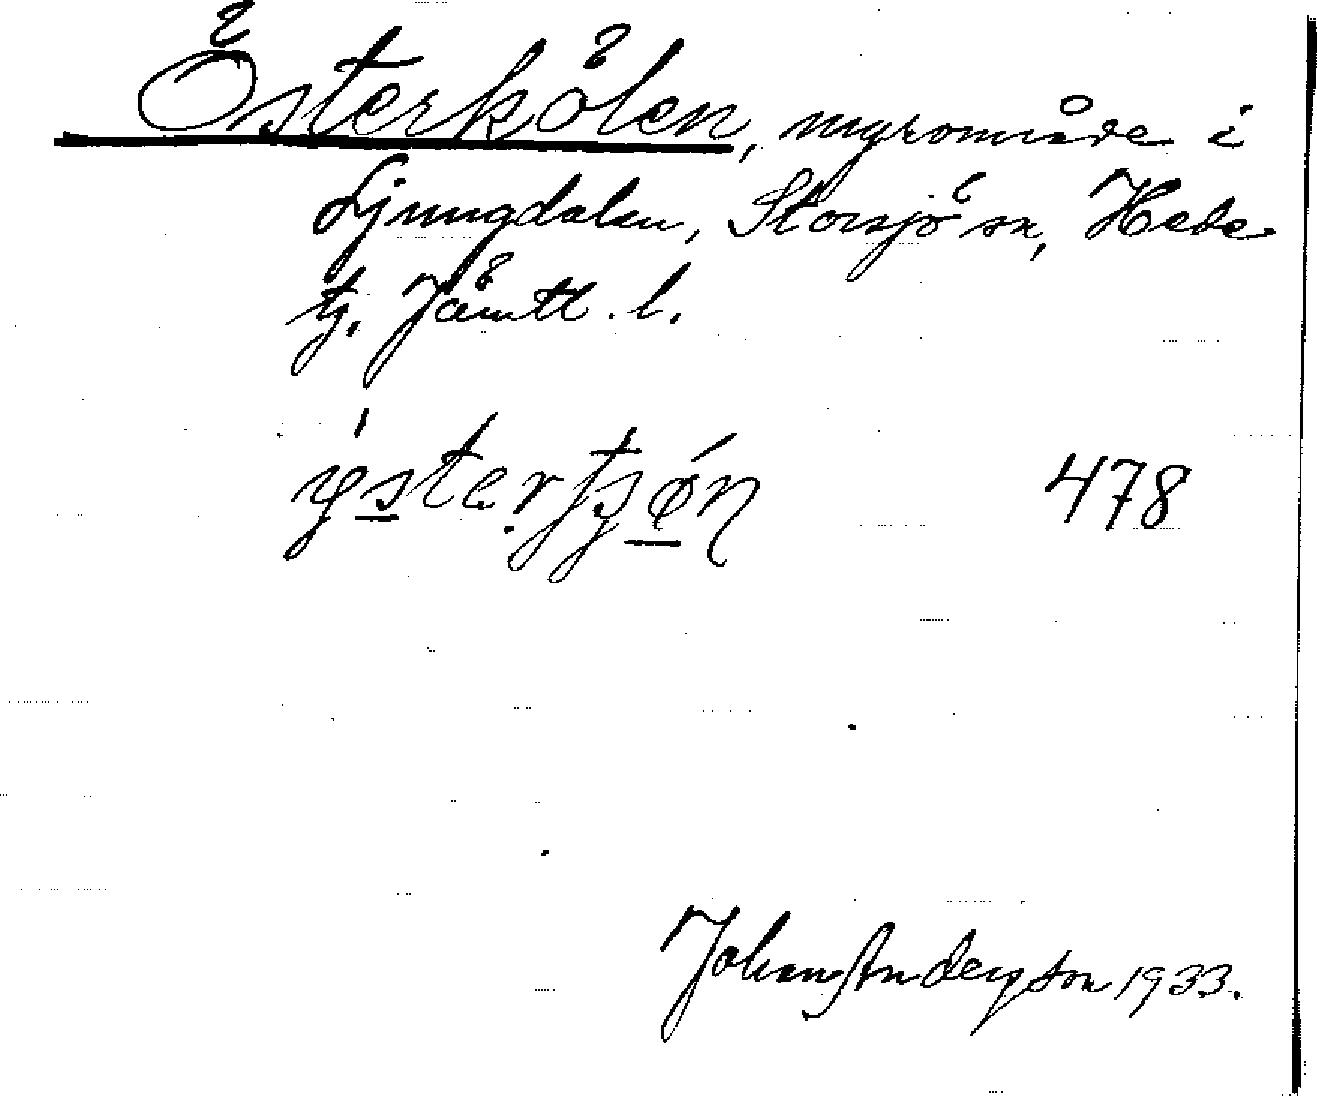 Österkölen, myrområde i
Ljungdalen, Storsjö sn, Hede
tj. Jämtl. l.
478
Johan Anderson 1933.